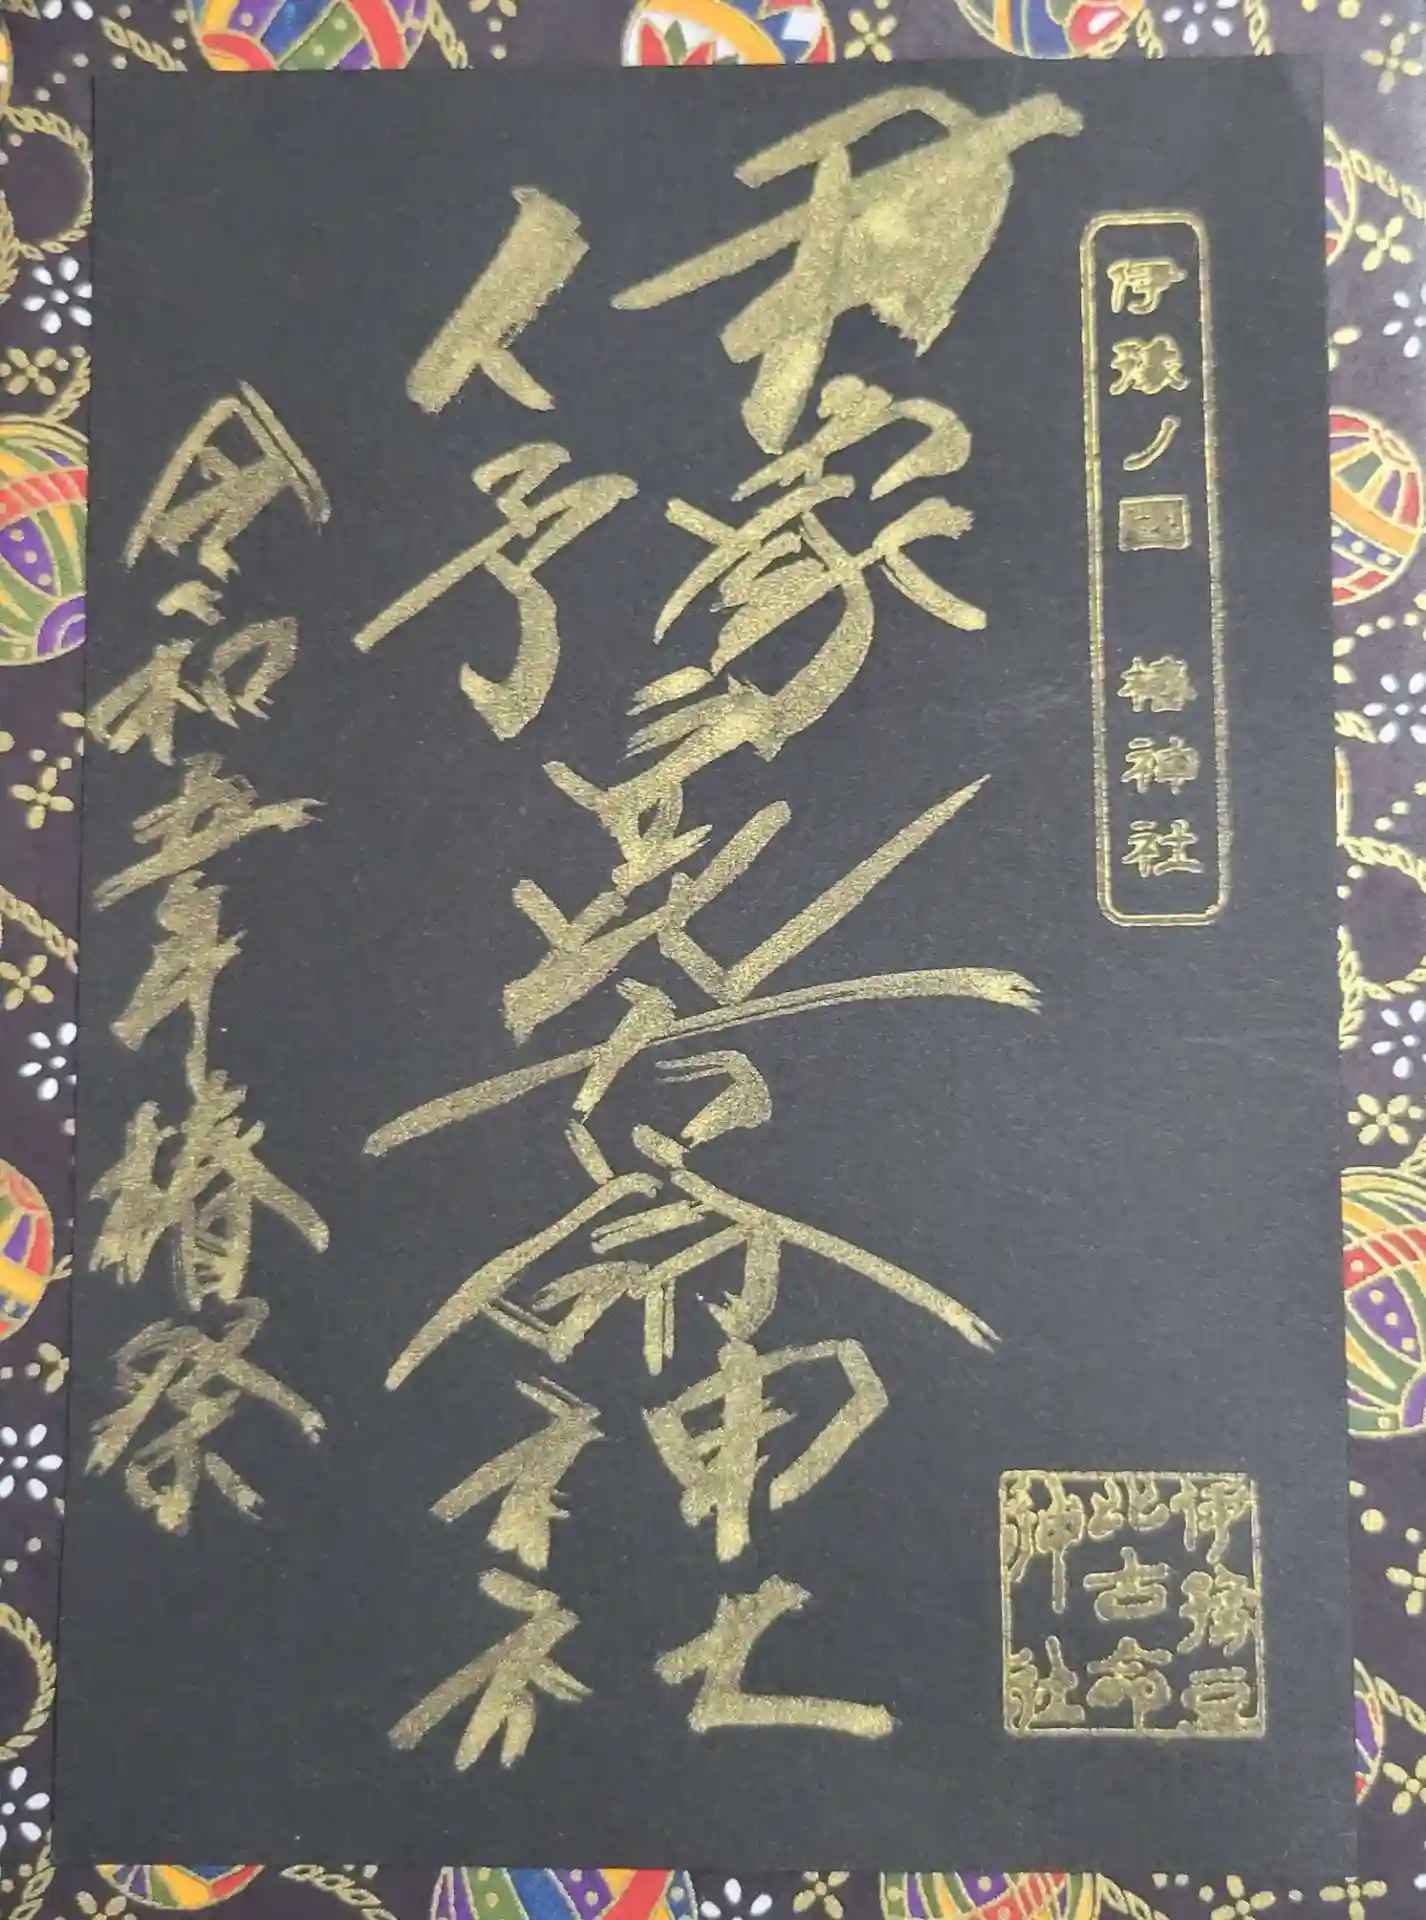 伊豫ノ國 椿神社
伊豫豆比古命神社
伊豫豆
比古命
神社
令和五年椿祭